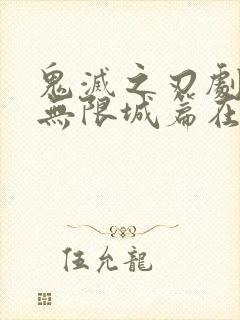 鬼滅之刃劇
無限城篇在
伍允龍